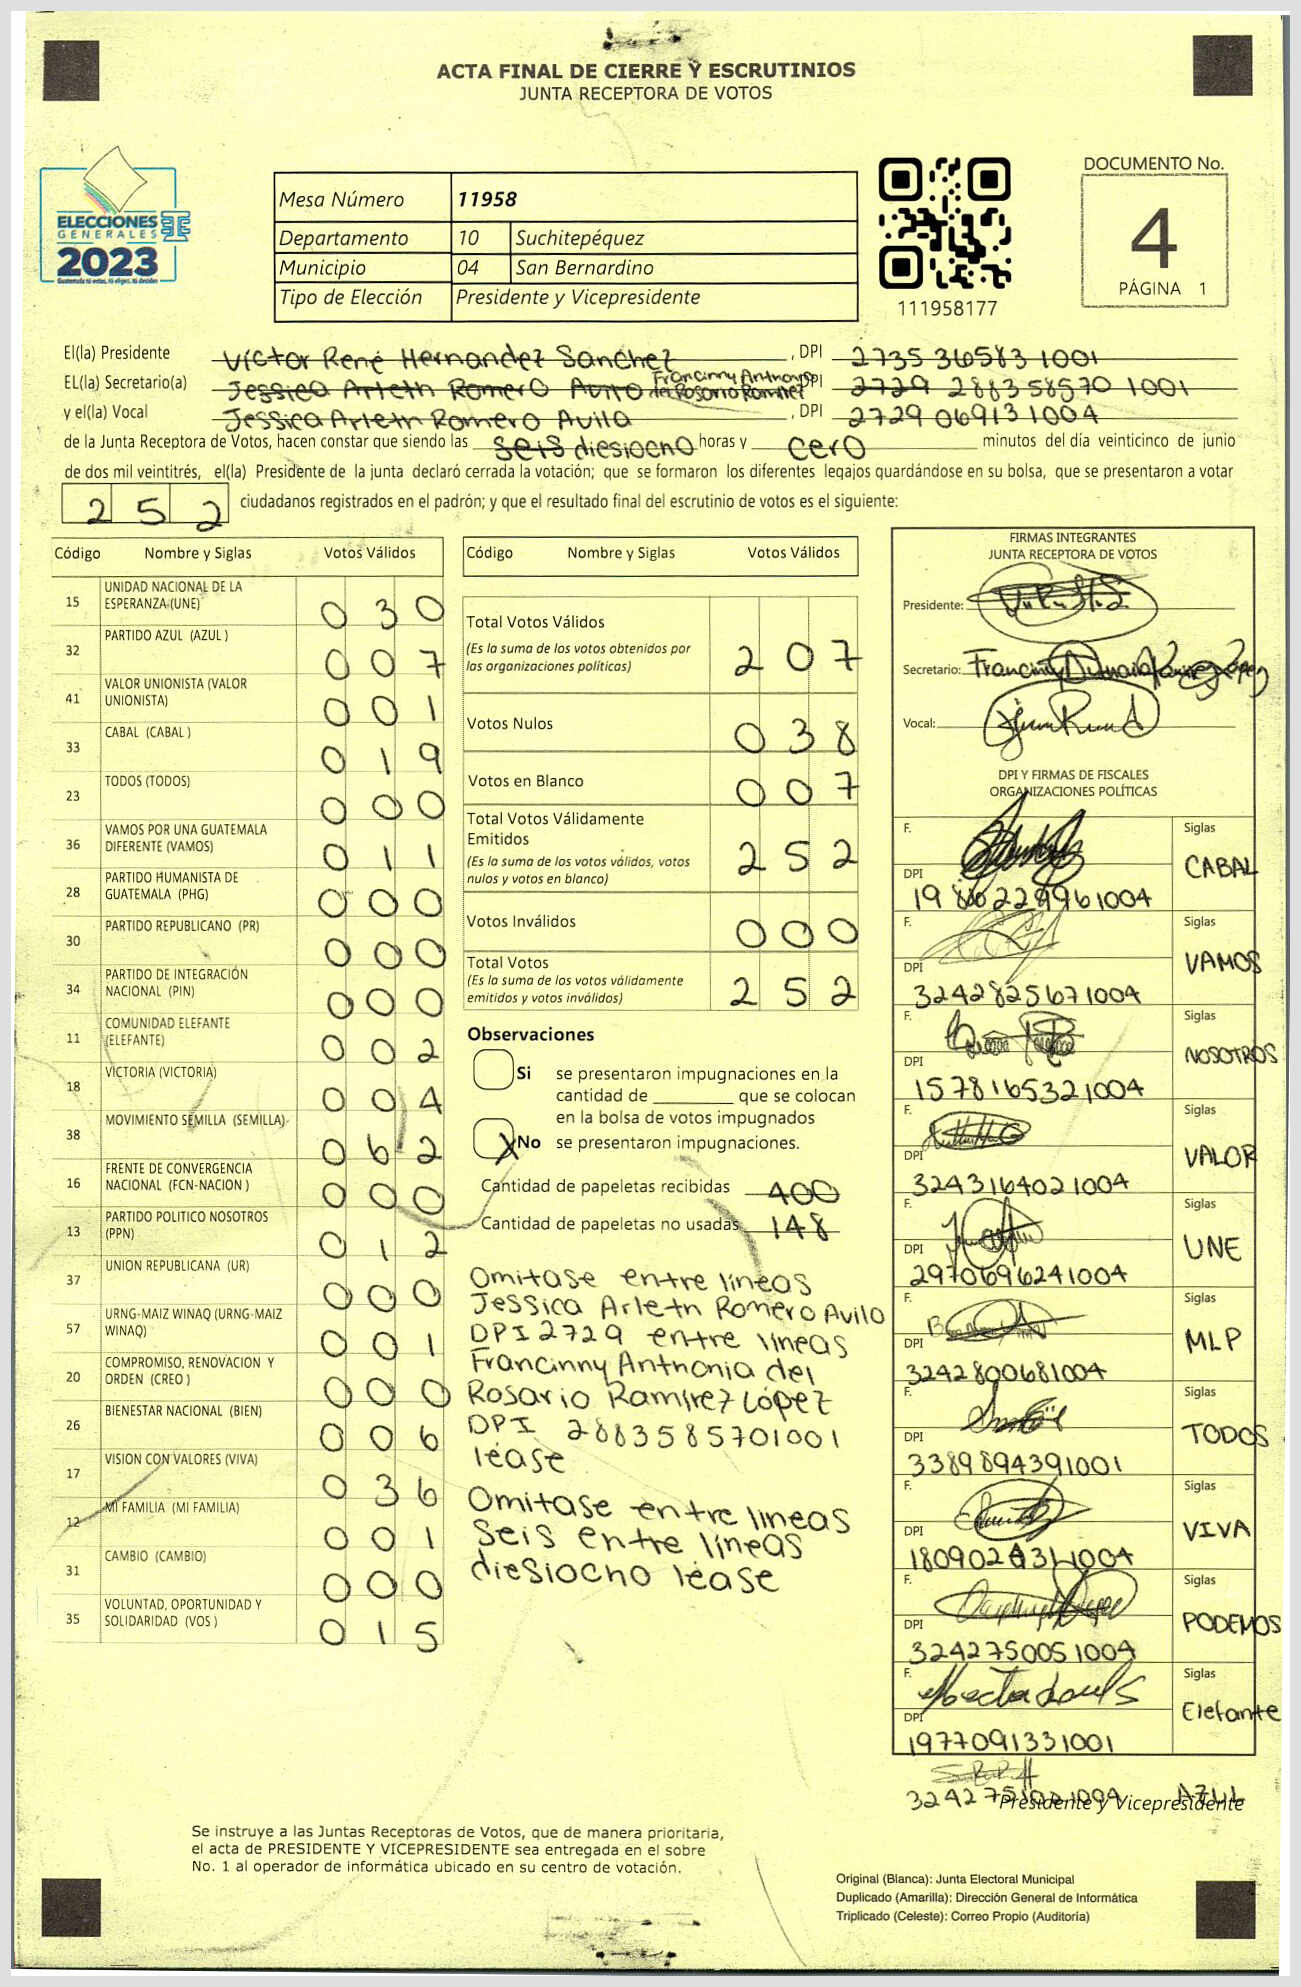 ACTA FINAL DE CIERRE Y ESCRUTINIOS
JUNTA RECEPTORA DE VOTOS
ELECCIONES
GENERALES
2023
Mesa Número 11958
Departamento 10 Suchitepéquez
Municipio 04 San Bernardino
Tipo de Elección Presidente y Vicepresidente
111958177
DOCUMENTO No.
4
PÁGINA 1
El(la) Presidente Víctor René Hernandez Sanchez , DPI 2735 36583 1001
EL(la) Secretario(a) Jessica Arleth Romero Avila Francinny Anthonia del Rosario Ramirez DPI 2729 288358570 1001
y el(la) Vocal Jessica Arleth Romero Avila , DPI 2729 06913 1004
de la Junta Receptora de Votos, hacen constar que siendo las seis diesiocho horas y cero minutos del día veinticinco de junio
de dos mil veintitrés, el(la) Presidente de la junta declaró cerrada la votación; que se formaron los diferentes legajos quardándose en su bolsa, que se presentaron a votar
252 ciudadanos registrados en el padrón; y que el resultado final del escrutinio de votos es el siguiente:
Código Nombre y Siglas Votos Válidos
15 UNIDAD NACIONAL DE LA ESPERANZA (UNE) 030
32 PARTIDO AZUL (AZUL ) 007
41 VALOR UNIONISTA (VALOR UNIONISTA) 001
33 CABAL (CABAL ) 019
23 TODOS (TODOS) 000
36 VAMOS POR UNA GUATEMALA DIFERENTE (VAMOS) 011
28 PARTIDO HUMANISTA DE GUATEMALA (PHG) 000
30 PARTIDO REPUBLICANO (PR) 000
34 PARTIDO DE INTEGRACIÓN NACIONAL (PIN) 000
11 COMUNIDAD ELEFANTE (ELEFANTE) 002
18 VICTORIA (VICTORIA) 004
38 MOVIMIENTO SEMILLA (SEMILLA) 062
16 FRENTE DE CONVERGENCIA NACIONAL (FCN-NACION ) 000
13 PARTIDO POLITICO NOSOTROS (PPN) 012
37 UNION REPUBLICANA (UR) 000
57 URNG-MAIZ WINAQ (URNG-MAIZ WINAQ) 001
20 COMPROMISO, RENOVACION Y ORDEN (CREO ) 000
26 BIENESTAR NACIONAL (BIEN) 006
17 VISION CON VALORES (VIVA) 036
12 MI FAMILIA (MI FAMILIA) 001
31 CAMBIO (CAMBIO) 000
35 VOLUNTAD, OPORTUNIDAD Y SOLIDARIDAD (VOS ) 015
Código Nombre y Siglas Votos Válidos
Total Votos Válidos
(Es la suma de los votos obtenidos por
las organizaciones políticas) 207
Votos Nulos 038
Votos en Blanco 007
Total Votos Válidamente
Emitidos
(Es la suma de los votos válidos, votos
nulos y votos en blanco) 252
Votos Inválidos 000
Total Votos
(Es la suma de los votos válidamente
emitidos y votos inválidos) 252
Observaciones
Si se presentaron impugnaciones en la
cantidad de ________ que se colocan
en la bolsa de votos impugnados
X No se presentaron impugnaciones.
Cantidad de papeletas recibidas 400
Cantidad de papeletas no usadas 148
Omitase entre lineas
Jessica Arleth Romero Avila
DPI 2729 entre lineas
Francinny Anthonia del
Rosario Ramírez López
DPI 2883585701001
léase
Omitase entre lineas
Seis entre líneas
diesiocho léase
FIRMAS INTEGRANTES
JUNTA RECEPTORA DE VOTOS
Presidente:
Secretario:
Vocal:
DPI Y FIRMAS DE FISCALES
ORGANIZACIONES POLÍTICAS
F. Siglas
DPI CABAL
F. Siglas
DPI VAMOS
3242825671004
F. Siglas
DPI NOSOTROS
1578165321004
F. Siglas
DPI VALOR
3243164021004
F. Siglas
DPI UNE
2970696241004
F. Siglas
DPI MLP
3242800681004
F. Siglas
DPI TODOS
3389894391001
F. Siglas
DPI VIVA
F. Siglas
DPI PODEMOS
3242750051004
F. Siglas
DPI Elefante
1977091331001
AZUL
Presidente y Vicepresidente
Se instruye a las Juntas Receptoras de Votos, que de manera prioritaria,
el acta de PRESIDENTE Y VICEPRESIDENTE sea entregada en el sobre
No. 1 al operador de informática ubicado en su centro de votación.
Original (Blanca): Junta Electoral Municipal
Duplicado (Amarilla): Dirección General de Informática
Triplicado (Celeste): Correo Propio (Auditoría)